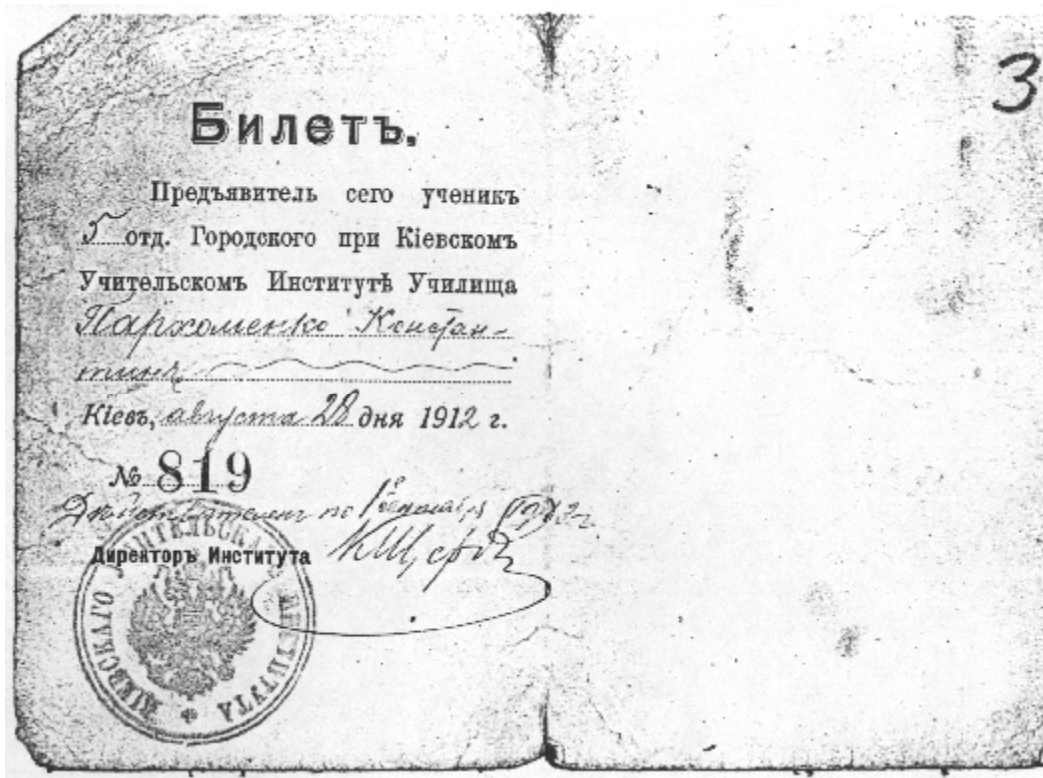 3
Билетъ.
Предъявитель сего ученикъ
5 отд. Городского при Кіевскомъ
Учительскомъ Институтѣ Училища
Пархоменко Констан-
тинъ
Кіевъ, августа 28 дня 1912 г.
№ 819
Дѣйствителенъ по 1е
Директоръ Института
КІЕВСКАГО УЧИТЕЛЬСКАГО ИНСТИТУТА